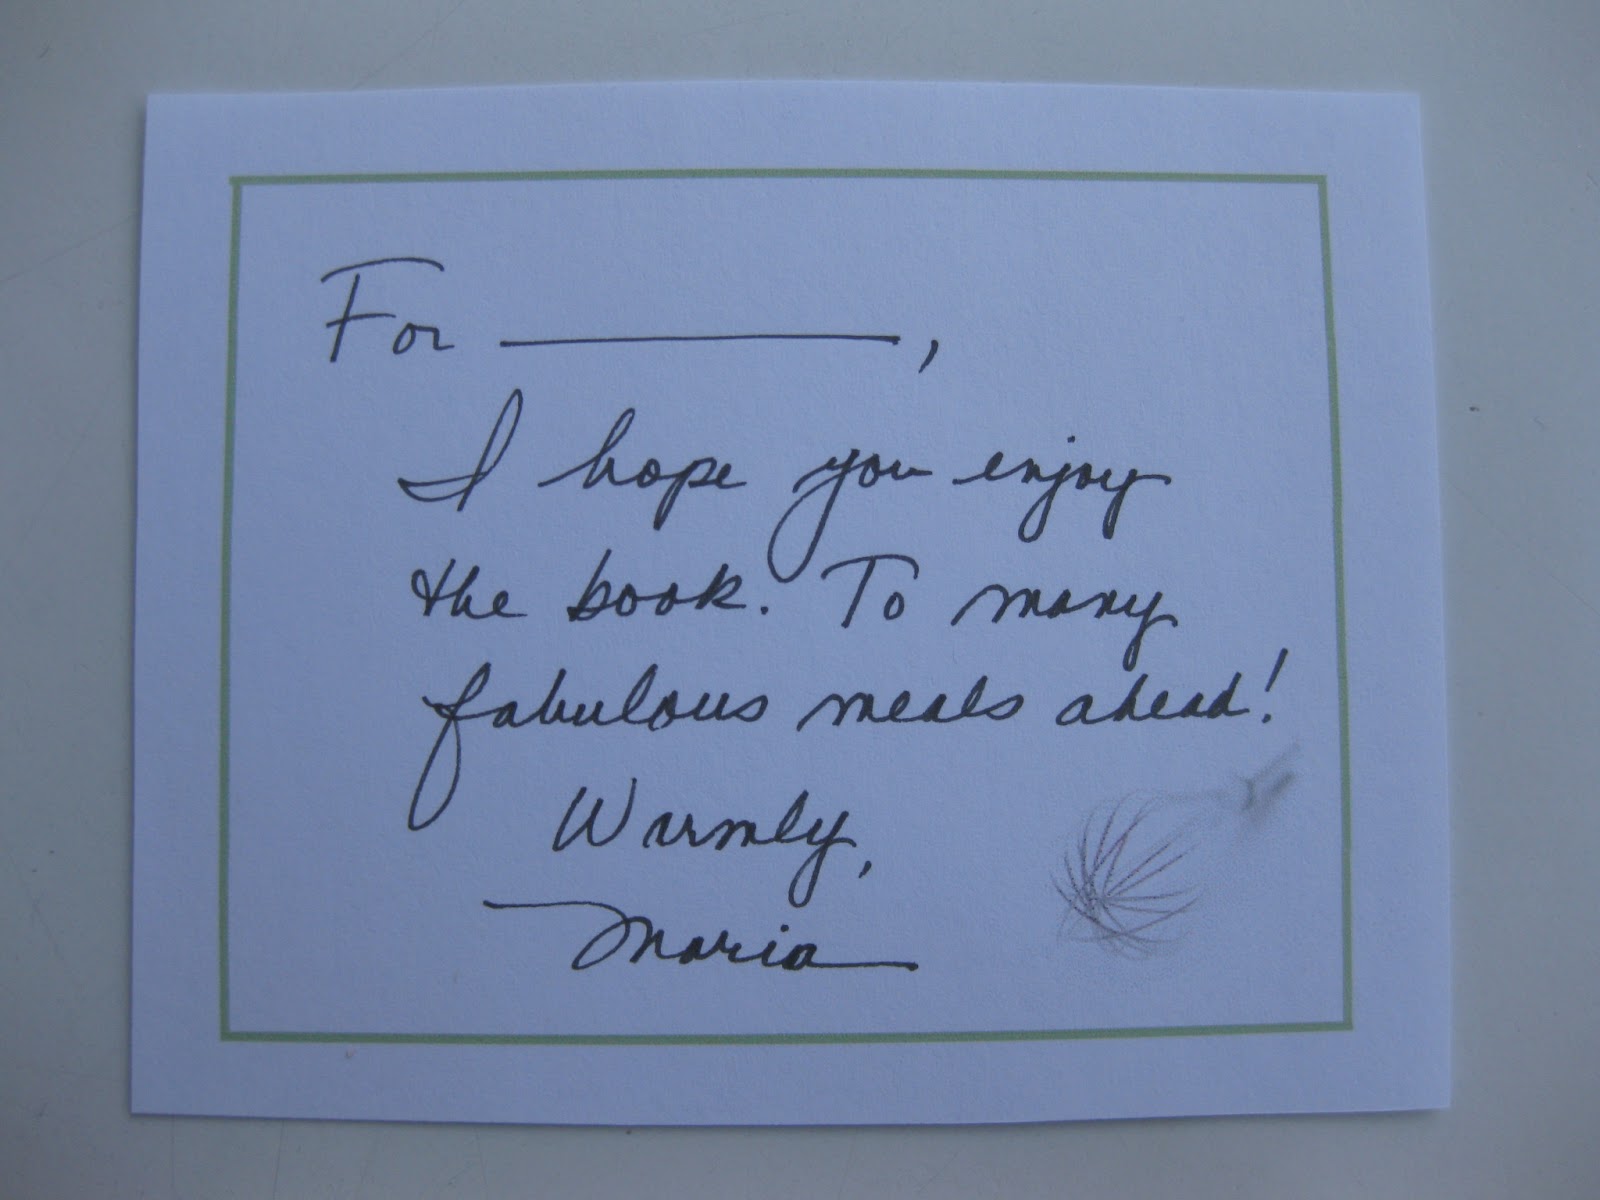 For __________,
I hope you enjoy
the book. To many
fabulous meals ahead!
Warmly,
Maria